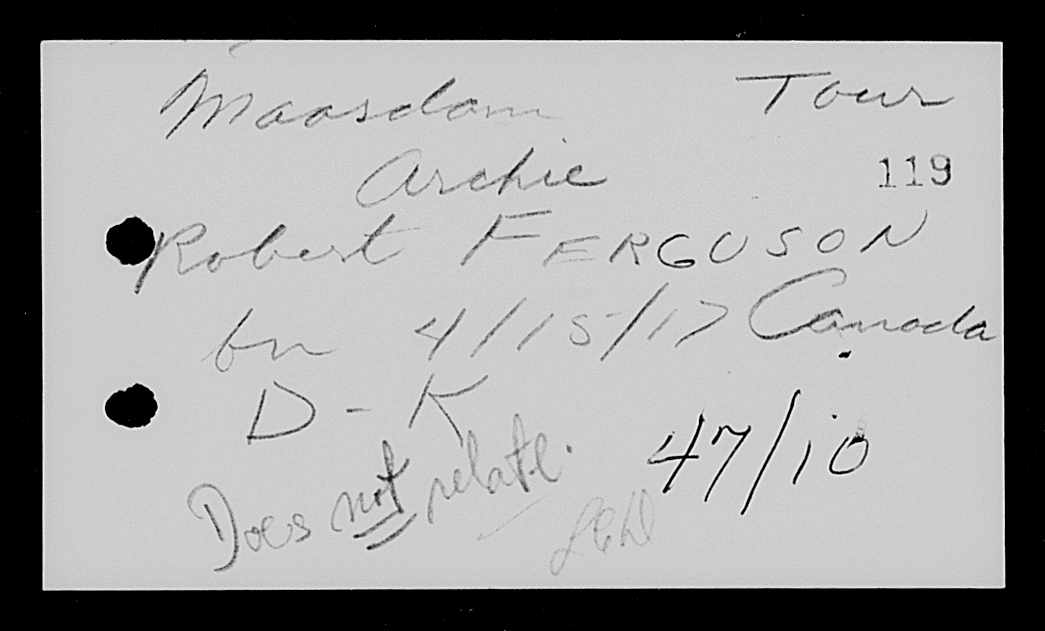 Maasdam Tour
Archie 119
Robert FERGUSON
bn 4/15/17 Canada
D-K
47/10
Does not relate.